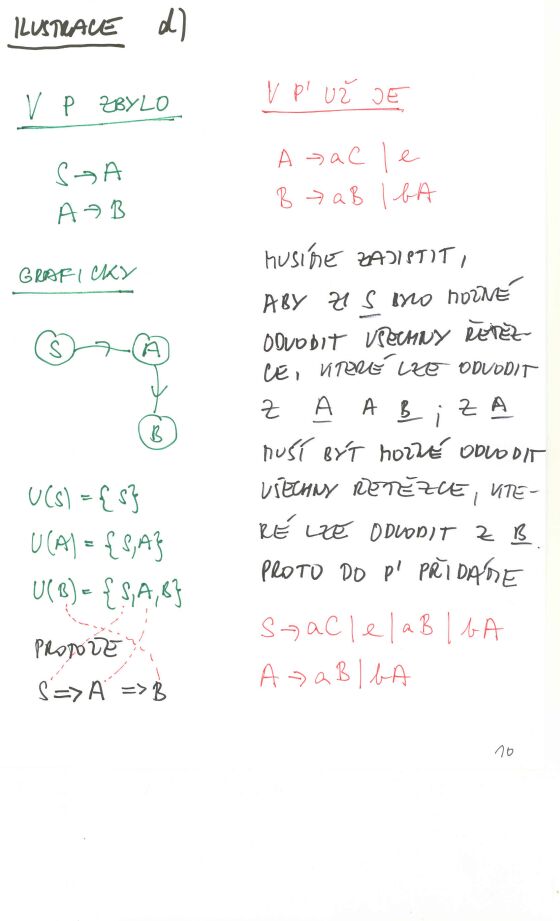 ILUSTRACE d)
V P ZBYLO
S → A
A → B
GRAFICKY
S A
B
U(S) = {S}
U(A) = {S,A}
U(B) = {S,A,B}
PROTOŽE
S => A => B
V P' UŽ JE
A → aC | e
B → aB | bA
MUSÍME ZAJISTIT,
ABY ZE S BYLO MOŽNÉ
ODVODIT VŠECHNY ŘETĚZ-
CE, KTERÉ LZE ODVODIT
Z A A B ; Z A
MUSÍ BÝT MOŽNÉ ODVODIT
VŠECHNY ŘETĚZCE, KTE-
RÉ LZE ODVODIT Z B.
PROTO DO P' PŘIDÁME
S → aC | e | aB | bA
A → aB | bA
10